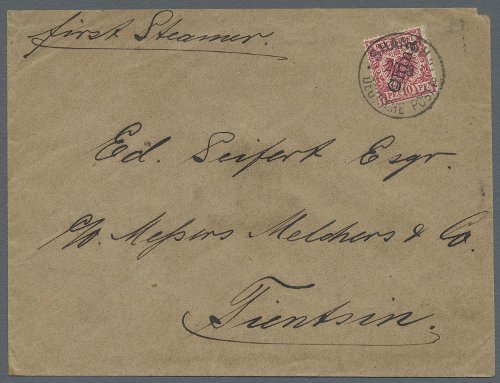 first Steamer.
China
DEUTSCHE POST
Ed. Seifert Esqr.
c/o. Messers Melchers & Co.
Tientsin.